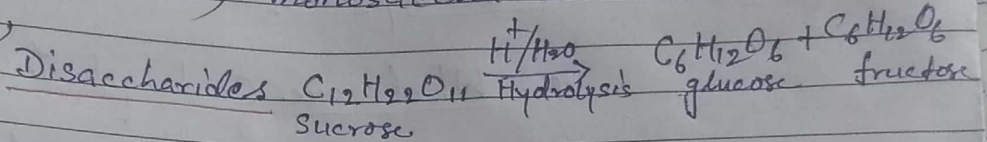 Disaccharides C₁₂H₂₂O₁₁ H⁺/H₂O Hydrolysis C₆H₁₂O₆ + C₆H₁₂O₆
Sucrose glucose fructose